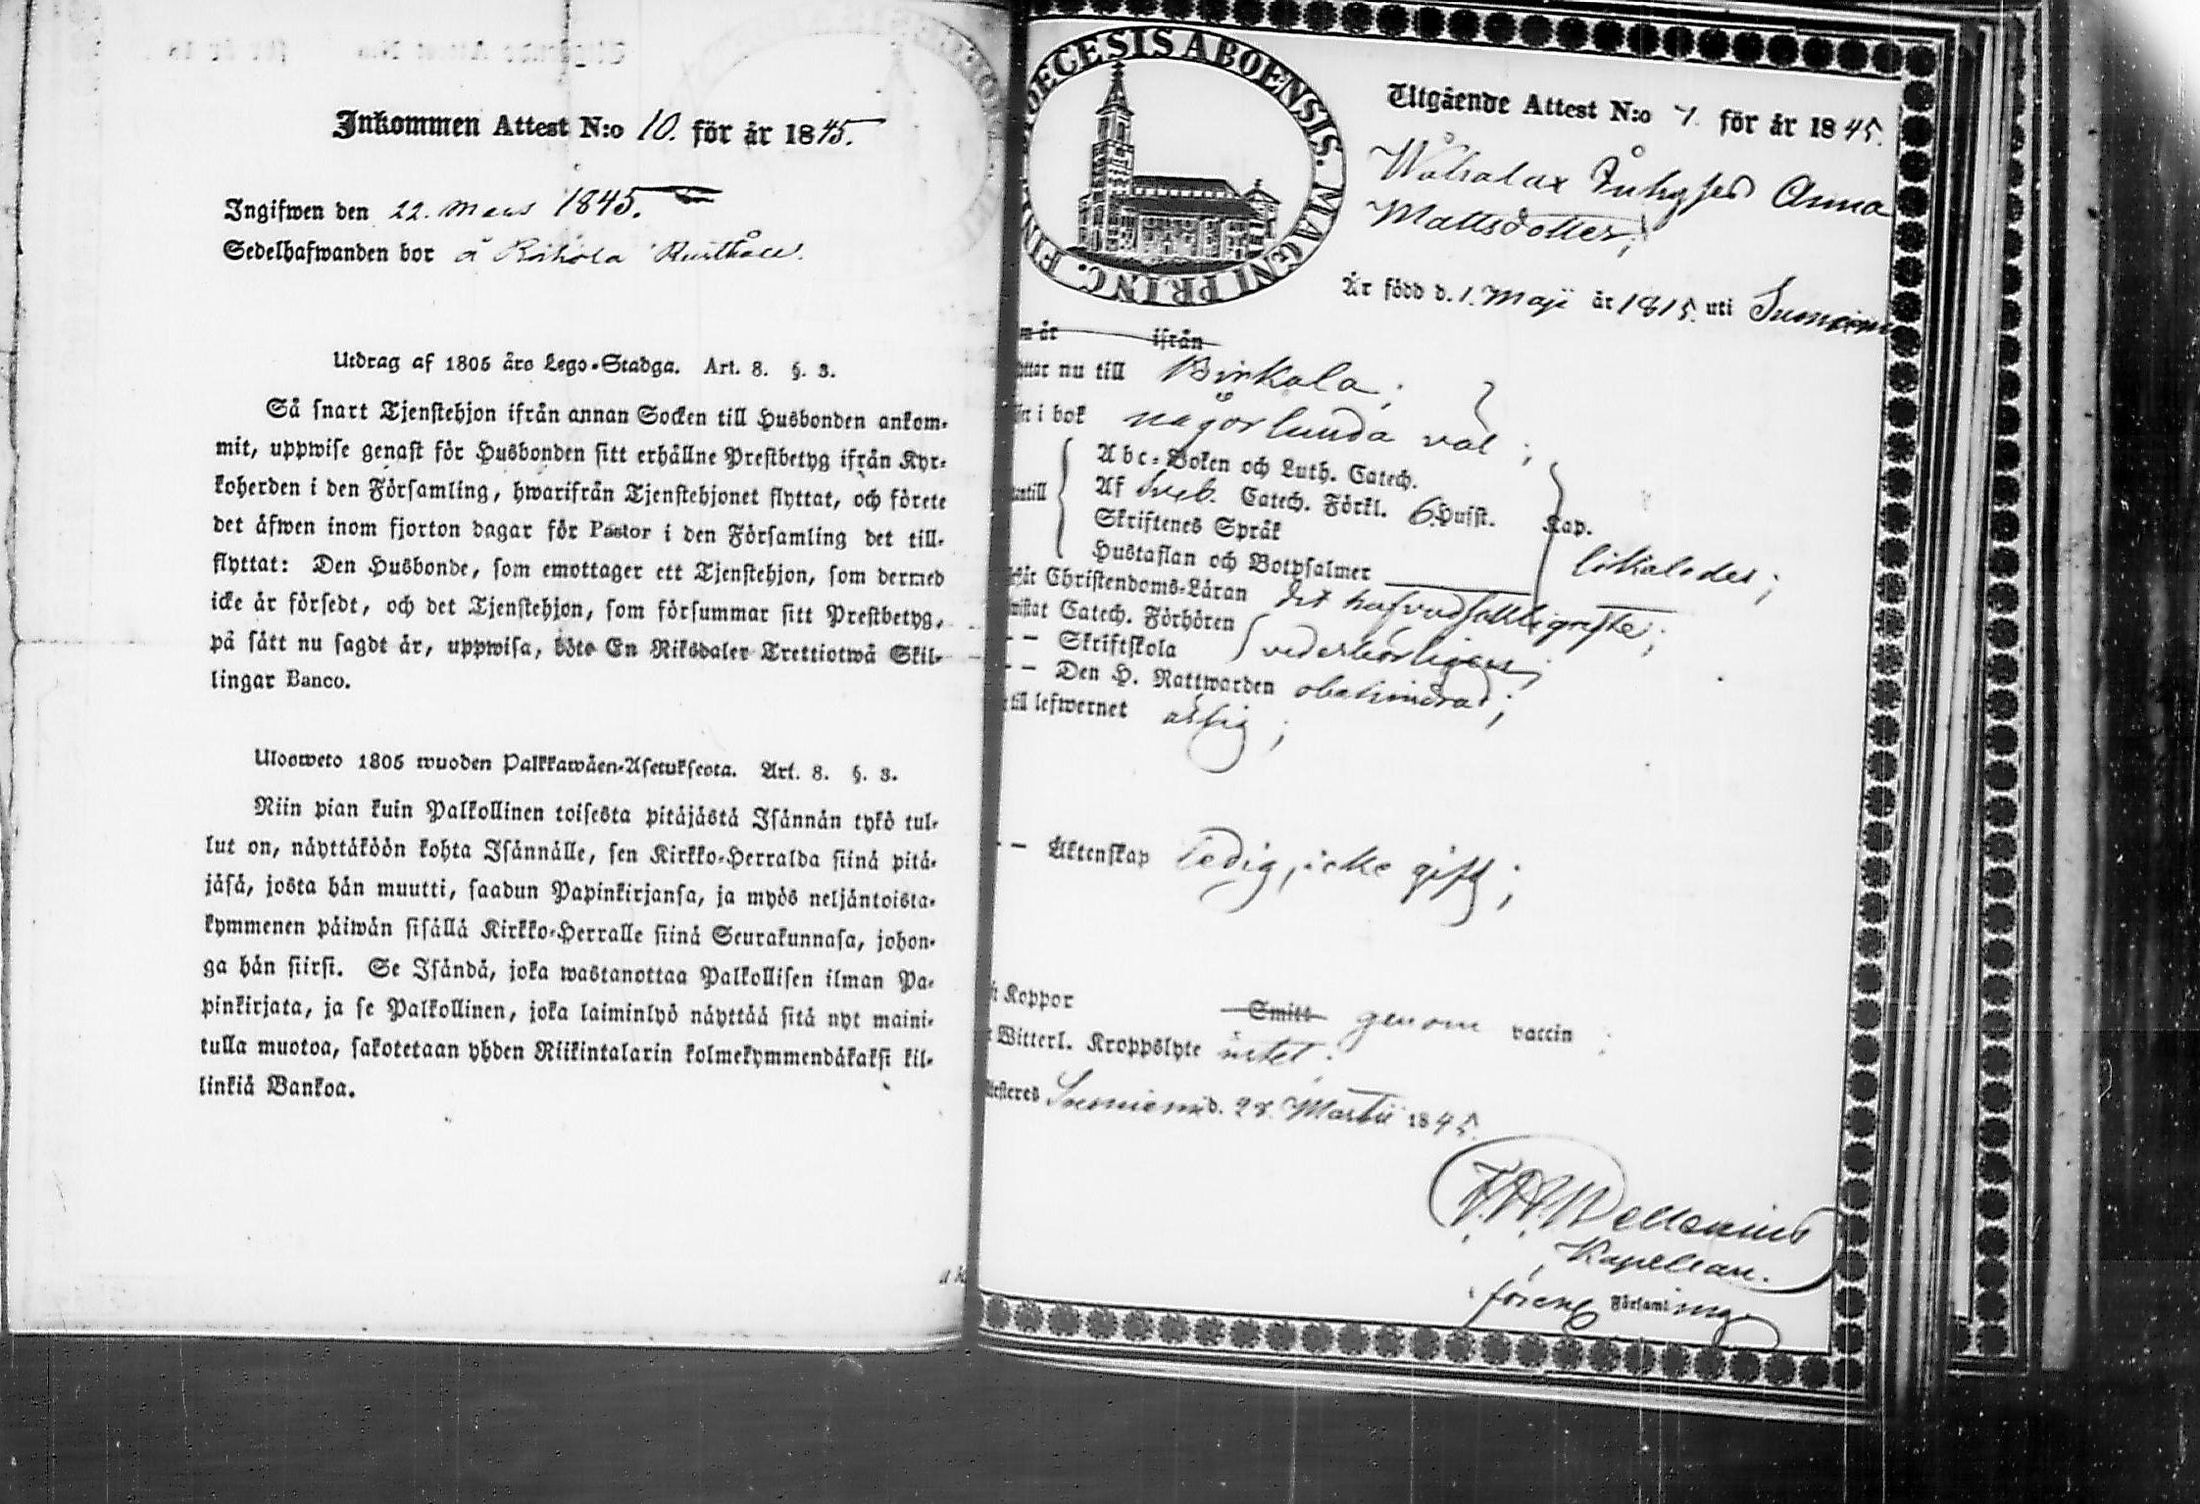 Inkommen Attest N:o 10. för år 1845.
Ingifwen den 22. Mars 1845.
Sedelhafwanden bor å
Utdrag af 1805 års Lego-Stadga. Art. 8. §. 3.
Så snart Tjenstehjon ifrån annan Socken till Husbonden ankom-
mit, uppwise genast för Husbonden sitt erhållne Prestbetyg ifrån Kyr-
koherden i den Församling, hwarifrån Tjenstehjonet flyttat, och förete
det äfwen inom fjorton dagar för Pastor i den Församling det till-
flyttat: Den Husbonde, som emottager ett Tjenstehjon, som dermed
icke är försedt, och det Tjenstehjon, som försummar sitt Prestbetyg,
på sätt nu sagdt är, uppwisa, böte En Riksdaler Trettiotwå Skil-
lingar Banco.
Ulosweto 1805 wuoden Palkkawäen-Asetuksesta. Art. 8. §. 3.
Niin pian kuin Palkollinen toisesta pitäjästä Isännän tykö tul-
lut on, näyttäköön kohta Isännälle, sen Kirkko-Herralda siinä pitä-
jäsä, josta hän muutti, saadun Papinkirjansa, ja myös neljäntoista-
kymmenen päiwän sisällä Kirkko-Herralle siinä Seurakunnasa, johon-
ga hän siirsi. Se Isändä, joka wastanottaa Palkollisen ilman Pa-
pinkirjata, ja se Palkollinen, joka laiminlyö näyttää sitä nyt maini-
tulla muotoa, sakotetaan yhden Riikintalarin kolmekymmendäkaksi kil-
linkiä Bankoa.
DIOECESIS ABOENSIS. MAGNI PRINC. FIN
Utgående Attest N:o 7. för år 1845.
Anna
Mattsdotter;
Är född d. 1. Maji år 1815. uti Suoniemi
år ifrån
nu till Birkala;
i bok någorlunda väl;
Abc-Boken och Luth. Catech.
Af Sveb. Catech. Förkl. 6. Hufst. Kap.
Skriftenes Språk
Hustaflan och Botpsalmer likaledes;
Christendoms-Läran det hufvudsakligaste;
Catech. Förhören
— — Skriftskola vederbörligen
— — Den H. Nattwarden obehindrad;
till lefwernet ärbig;
— — Äktenskap ledig, icke gift;
Koppor Smitt genom vaccin
Witterl. Kroppslyte intet.
Suoniemi d. 28. Martii 1845.
Kapellan.
Församling